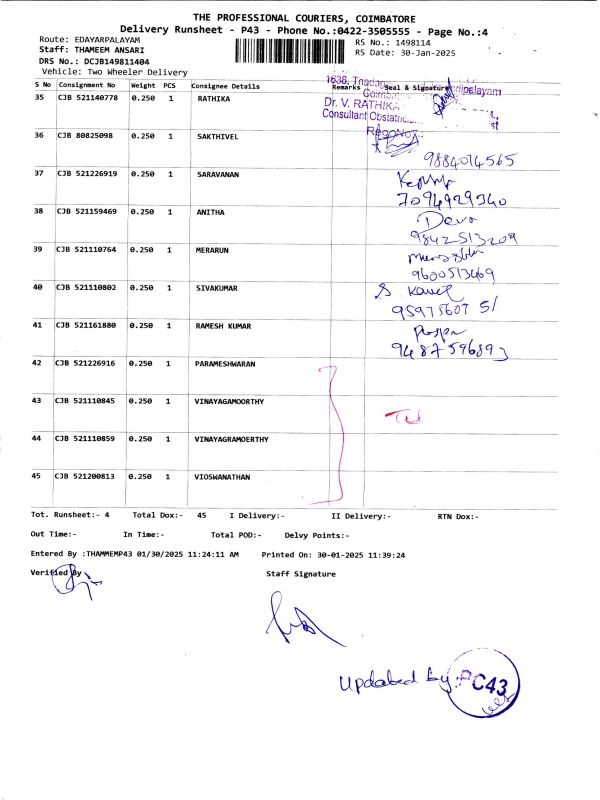 THE PROFESSIONAL COURIERS, COIMBATORE
Delivery Runsheet - P43 - Phone No.:0422-3505555 - Page No.:4
Route: EDAYARPALAYAM
RS No.: 1498114
Staff: THAMEEM ANSARI
RS Date: 30-Jan-2025
DRS No.: DCJB149811404
Vehicle: Two Wheeler Delivery
S No Consignment No Weight PCS Consignee Details Remarks Seal & Signature
35 CJB 521140778 0.250 1 RATHIKA
Dr. V. RATHIKA
Consultant Obstetric
36 CJB 80825098 0.250 1 SAKTHIVEL
9884014565
37 CJB 521226919 0.250 1 SARAVANAN
7094929340
38 CJB 521159469 0.250 1 ANITHA
Deva
9842513209
39 CJB 521110764 0.250 1 MERARUN
9600513469
40 CJB 521110802 0.250 1 SIVAKUMAR
95975607 51
41 CJB 521161880 0.250 1 RAMESH KUMAR
9487596893
42 CJB 521226916 0.250 1 PARAMESHWARAN
43 CJB 521110845 0.250 1 VINAYAGAMOORTHY
44 CJB 521110859 0.250 1 VINAYAGRAMOERTHY
45 CJB 521200813 0.250 1 VIOSWANATHAN
Tot. Runsheet:- 4 Total Dox:- 45 I Delivery:- II Delivery:- RTN Dox:-
Out Time:- In Time:- Total POD:- Delvy Points:-
Entered By :THAMMEMP43 01/30/2025 11:24:11 AM Printed On: 30-01-2025 11:39:24
Verified By Staff Signature
Updated by: PC43